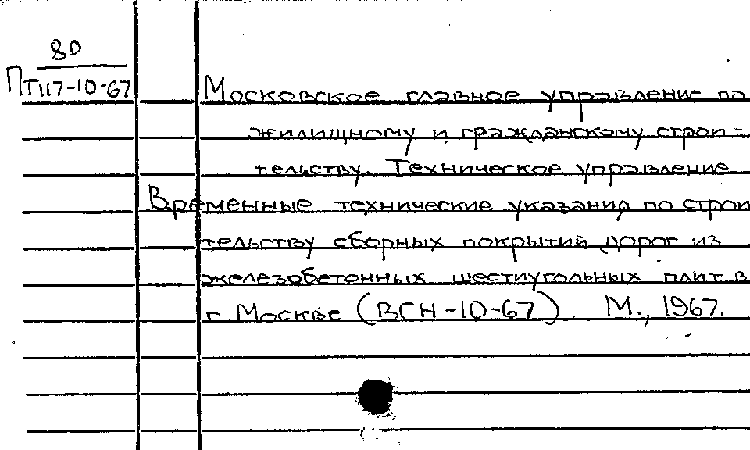 80
ПТ117-10-67
Московское главное управление по
жилищному и гражданскому строи-
тельству. Техническое управление
Временные технические указания по строи
тельству сборных покрытий дорог из
железобетонных шестиугольных плит в
г Москве (ВСН-10-67) М., 1967.